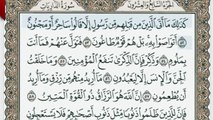 الجزء السابع والعشرون سورة الذاريات
كَذَٰلِكَ مَآ أَتَى ٱلَّذِينَ مِن قَبْلِهِم مِّن رَّسُولٍ إِلَّا قَالُوا۟ سَاحِرٌ أَوْ مَجْنُونٌ
٥٢ أَتَوَاصَوْا۟ بِهِۦ بَلْ هُمْ قَوْمٌ طَاغُونَ ٥٣ فَتَوَلَّ عَنْهُمْ فَمَآ أَنتَ
بِمَلُومٍ ٥٤ وَذَكِّرْ فَإِنَّ ٱلذِّكْرَىٰ تَنفَعُ ٱلْمُؤْمِنِينَ ٥٥ وَمَا خَلَقْتُ
ٱلْجِنَّ وَٱلْإِنسَ إِلَّا لِيَعْبُدُونِ ٥٦ مَآ أُرِيدُ مِنْهُم مِّن رِّزْقٍ وَمَآ أُرِيدُ
أَن يُطْعِمُونِ ٥٧ إِنَّ ٱللَّهَ هُوَ ٱلرَّزَّاقُ ذُو ٱلْقُوَّةِ ٱلْمَتِينُ